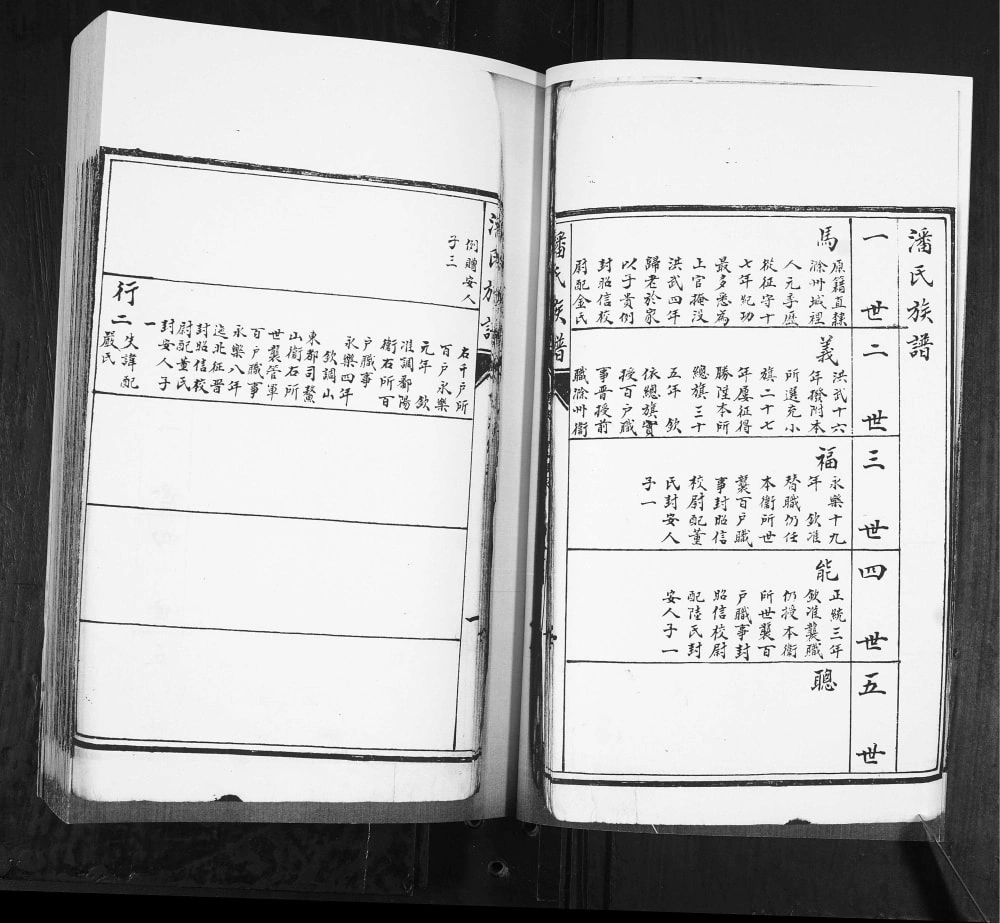 潘氏族譜
一世
馬
原籍直隸
滁州城裡
人元季歷
從征守十
七年紀功
最多悉為
上官掩沒
洪武四年
歸老於家
以子貴例
封昭信校
尉配金氏
二世
義
洪武十六
年撥附本
所選充小
旗二十七
年屢征得
勝陞本所
總旗三十
五年　欽
依總旗實
授百戶職
事晋授前
職滁州衛
三世
福
永樂十九
年　欽准
替職仍任
本衛所世
襲百戶職
事封昭信
校尉配董
氏封安人
子一
四世
能
正統三年
欽准襲職
仍授本衛
所世襲百
戶職事封
昭信校尉
配陸氏封
安人子一
五世
聰
潘氏族譜
潘氏族譜
例贈安人
子三
右千戶所
百戶永樂
元年　欽
准調鄱陽
衛右所百
戶職事
永樂四年
欽調山
東都司鰲
山衛右所
世襲管軍
百戶職事
永樂八年
迤北征晋
封昭信校
尉配董氏
封安人子
一
行二
失諱配
嚴氏
一